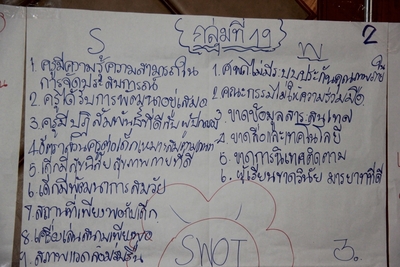 กลุ่มที่ 19
2
S
W
1. ครูมีความรู้ความสามารถใน
การจัดประสบการณ์
2. ครูได้รับการพัฒนาอยู่เสมอ
3. ครูมีปฏิสัมพันธ์ที่ดีกับผู้ปกครอง
5. เด็กมีสุขนิสัย สุขภาพกายที่ดี
6. เด็กมีพัฒนาการสมวัย
7. สถานที่เพียงพอกับเด็ก
8. เครื่องเล่นสนามเพียงพอ
9. สภาพแวดล้อมร่มรื่น
1. ศพดไม่มีระบบประกันคุณภาพภายใน
2. คณะกรรมไม่ให้ความร่วมมือ
3. ขาดข้อมูลสารสนเทศ
4. ขาดสื่อและเทคโนโลยี
5. ขาดการนิเทศติดตาม
6. ผู้เรียนขาดวินัย มารยาทที่ดี
SWOT
3.